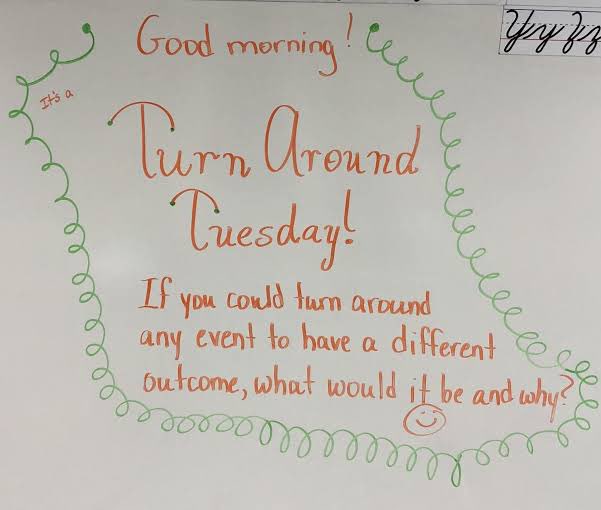 Good morning!
Yy Zz
It's a
Turn Around
Tuesday!
If you could turn around
any event to have a different
outcome, what would it be and why?